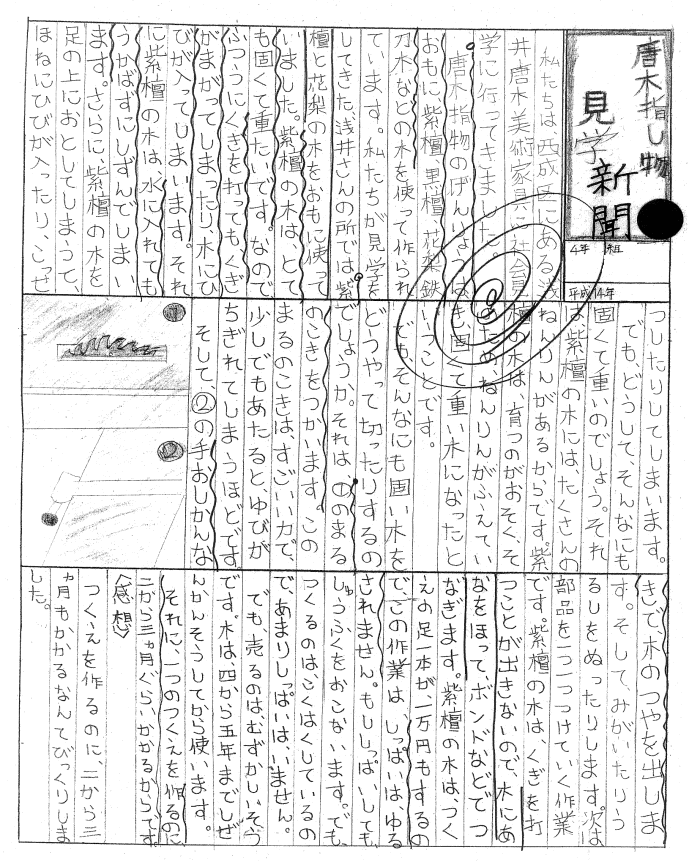 唐木指し物
見学
新聞
4年 組
平成14年
私たちは、西成区にある浅
井唐木美術家具に社会見
学に行ってきました。
唐木指物のげんりょうは
おもに、紫檀、黒檀、花梨、鉄
刀木などの木を使って作られ
ています。私たちが見学を
してきた、浅井さんの所では、紫
檀と花梨の木をおもに使って
いました。紫檀の木は、とて
も固くて重たいです。なので
ふつうにくぎを打ってもくぎ
がまがってしまったり、木にひ
びが入ってしまいます。それ
に紫檀の木は、水に入れても
うかばずにしずんでしまい
ます。さらに、紫檀の木を
足の上におとしてしまうと、
ほねにひびが入ったり、こっせ
つしたりしてしまいます。
でも、どうして、そんなにも
固くて重いのでしょう。それ
は紫檀の木には、たくさんの
ねんりんがあるからです。紫
檀の木は、育つのがおそく、そ
のため、ねんりんがふえてい
き、固くて重い木になったと
いうことです。
でも、そんなにも固い木を
どうやって切ったりするの
でしょうか。それは、①のまる
のこきをつかいます。この
まるのこきは、すごい力で、
少しでもあたるとゆびが
ちぎれてしまうほどです。
そして、②の手おしかんな
きで、木のつやを出しま
す。そして、みがいたりう
るしをぬったりします。次は
部品を一つ一つつけていく作業
です。紫檀の木は、くぎを打
つことが出きないので、木にあ
なをほって、ボンドなどでつ
なぎます。紫檀の木は、つく
えの足一本が一万円もするの
で、この作業は、しっぱいは、ゆる
されません。もししっぱいしても、
しゅうふくをおこないます。でも、
つくるのは、こくはくしているの
で、あまりしっぱいは、いません。
でも売るのは、むずかしいそう
です。木は四から五年までしぜ
んかんそうしてから使います。
それに、一つのつくえを作るのに
二から三ヵ月ぐらいかかるからです。
〈感想〉
つくえを作るのに、二から三
ヵ月もかかるなんてびっくりしま
した。